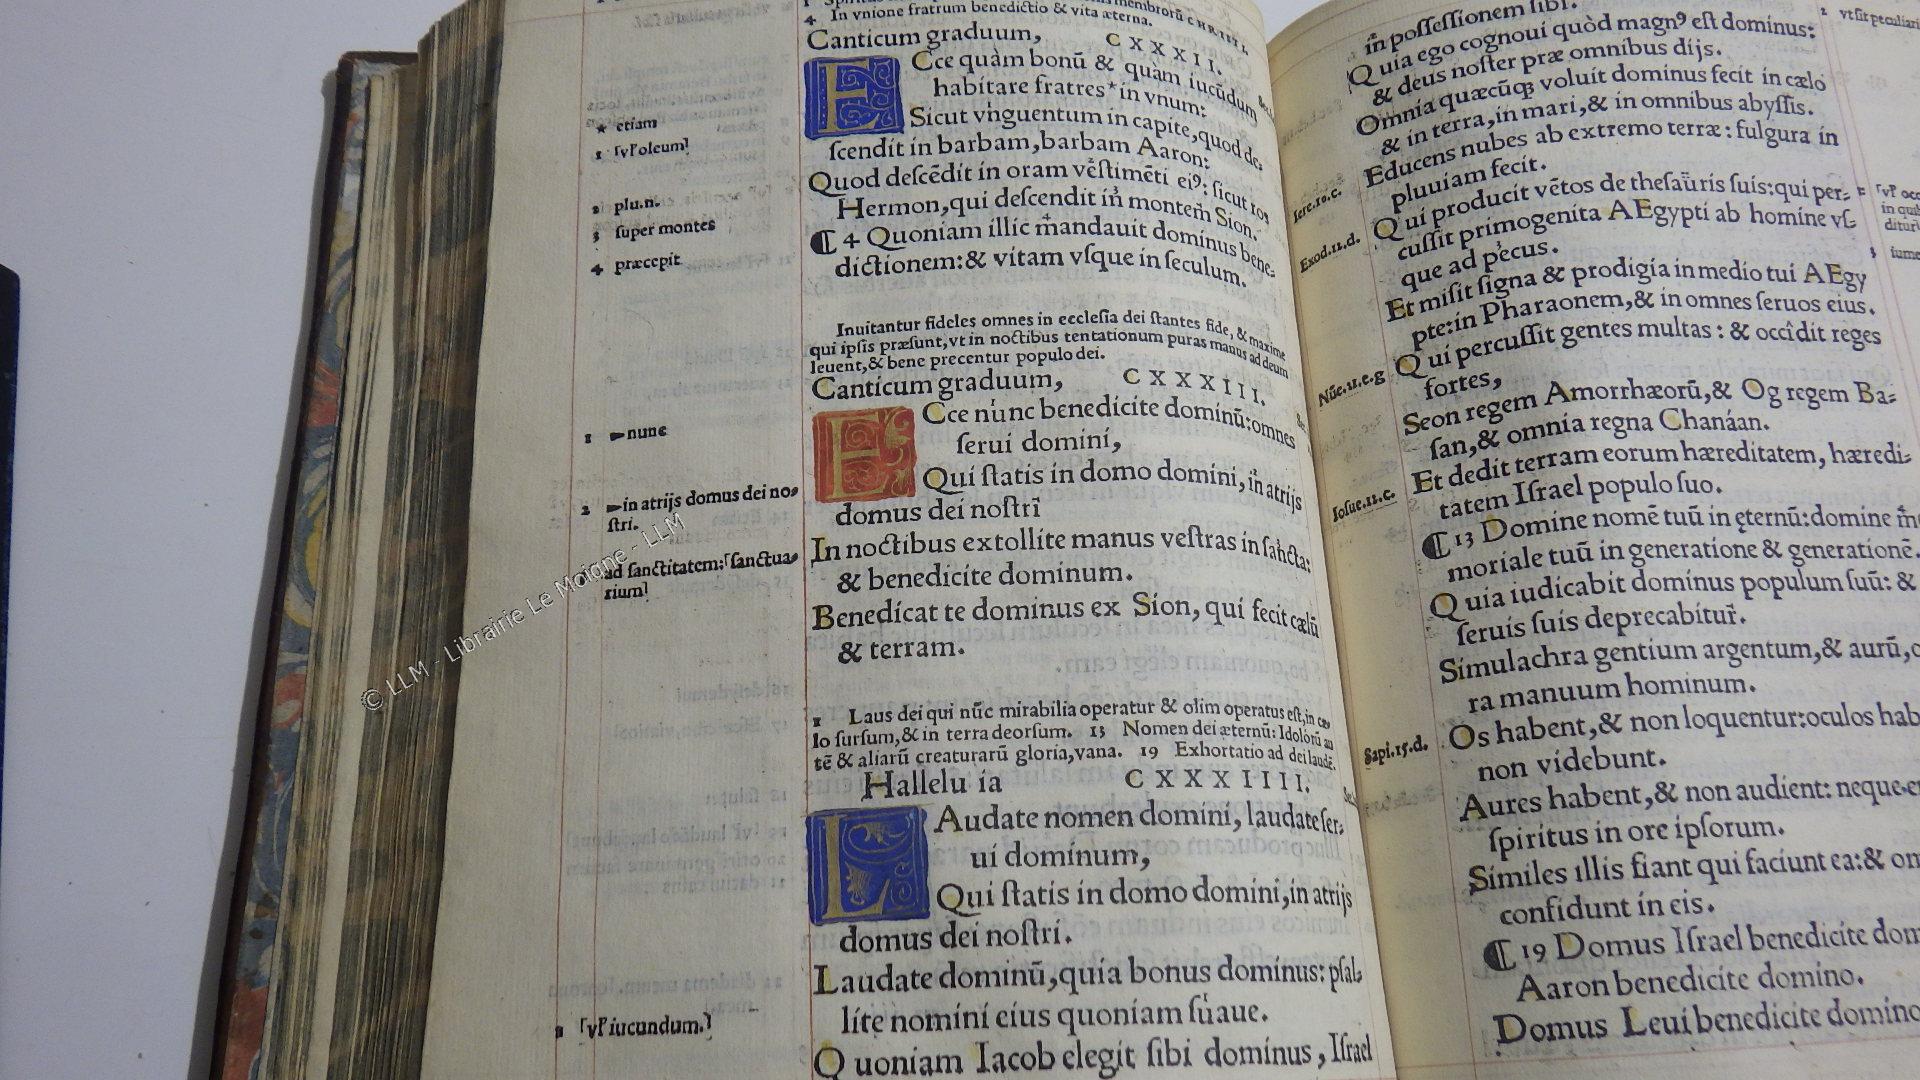 4 In vnione fratrum benedictio & vita æterna.
Canticum graduum, CXXXII.
Ecce quàm bonū & quàm iucūdum
habitare fratres*in vnum:
Sicut vnguentum in capite,quod de-
ſcendit in barbam,barbam Aaron:
Quod deſcēdit in oram veſtimēti eiꝰ: ſicut ros
Hermon,qui deſcendit in montem Sion.
¶ 4 Quoniam illic mandauit dominus bene-
dictionem:& vitam vſque in ſeculum.
Inuitantur fideles omnes in eccleſia dei ſtantes fide, & maxime
qui ipſis præſunt,vt in noctibus tentationum puras manus ad deum
leuent,& bene precentur populo dei.
Canticum graduum, CXXXIII.
Ecce nunc benedicite dominū:omnes
ſerui domini,
Qui ſtatis in domo domini,in atrijs
domus dei noſtri
In noctibus extollite manus veſtras in ſancta:
& benedicite dominum.
Benedicat te dominus ex Sion, qui fecit cælū
& terram.
1 Laus dei qui nūc mirabilia operatur & olim operatus eſt,in cæ
lo ſurſum,& in terra deorſum. 13 Nomen dei æternū: Idolorū au
tē & aliarū creaturarū gloria,vana. 19 Exhortatio ad dei laudē.
Hallelu ia CXXXIIII.
LAudate nomen domini, laudate ſer-
ui dominum,
Qui ſtatis in domo domini,in atrijs
domus dei noſtri.
Laudate dominū,quia bonus dominus: pſal-
lite nomini eius quoniam ſuaue.
Quoniam Iacob elegit ſibi dominus , Iſrael
* etiam
1 ⸢vl' oleum⸣
2 plu.n.
3 ſuper montes
4 præcepit
1 nunc
2 in atrijs domus dei no-
ſtri.
ad ſanctitatem:⸢ſanctua-
rium⸣
2 ⸢vl' iucundum.⸣
© LLM - Librairie Le Moigne - LLM
in poſſeſſionem ſibi.
Quia ego cognoui quòd magnꝰ eſt dominus:
& deus noſter præ omnibus dijs.
Omnia quæcūqꝫ voluit dominus fecit in cælo
& in terra,in mari,& in omnibus abyſſis.
Educens nubes ab extremo terræ: fulgura in
pluuiam fecit.
Qui producit vētos de theſauris ſuis:qui per-
cuſſit primogenita AEgypti ab homine vſ-
que ad pecus.
Et miſit ſigna & prodigia in medio tui AEgy
pte:in Pharaonem,& in omnes ſeruos eius.
Qui percuſſit gentes multas : & occîdit reges
fortes,
Seon regem Amorrhæorū,& Og regem Ba-
ſan,& omnia regna Chanáan.
Et dedit terram eorum hæreditatem, hæredi-
tatem Iſrael populo ſuo.
¶ 13 Domine nomē tuū in ęternū:domine me
moriale tuū in generatione & generationē.
Quia iudicabit dominus populum ſuū: &
ſeruis ſuis deprecabitur.
Simulachra gentium argentum,& aurū,o
ra manuum hominum.
Os habent,& non loquentur:oculos hab
non videbunt.
Aures habent,& non audient: neque e
ſpiritus in ore ipſorum.
Similes illis fiant qui faciunt ea:& om
confidunt in eis.
¶ 19 Domus Iſrael benedicite dom
Aaron benedicite domino.
Domus Leui benedicite domino
Iere.10.c.
Exod.12.d.
Nūe.21.e.g
Ioſue.12.c.
Sapi.15.d.
2 vt ſit peculiari
⸢vl' occ